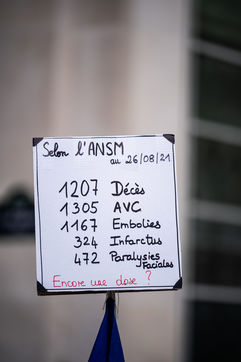 Selon l'ANSM
au 26/08/21
1207 Décès
1305 AVC
1167 Embolies
324 Infarctus
472 Paralysies
Faciales
Encore une dose ?